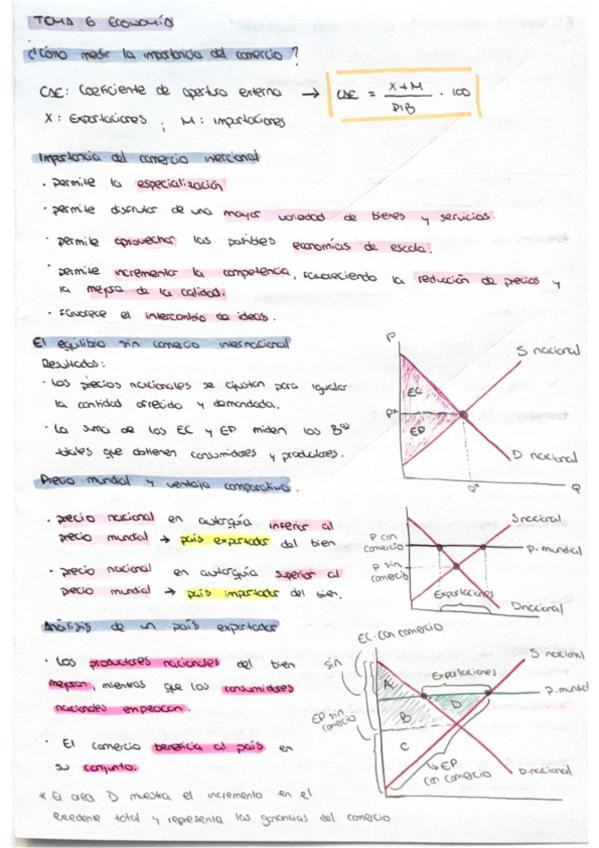 TEMA 6 ECONOMÍA
¿Cómo medir la importancia del comercio?
CAE: Coeficiente de apertura externa → CAE = X+M / PIB · 100
X: Exportaciones ; M: Importaciones
Importancia del comercio internacional
· permite la especialización
· permite disfrutar de una mayor variedad de bienes y servicios.
· permite aprovechar las posibles economías de escala.
· permite incrementar la competencia, favoreciendo la reducción de precios y
la mejora de la calidad.
· Favorece el intercambio de ideas.
El equilibrio sin comercio internacional
Resultados:
· Los precios nacionales se ajustan para igualar
la cantidad ofrecida y demandada.
· La suma de los EC y EP miden los Bºˢ
totales que obtienen consumidores y productores.
P
S nacional
EC
P*
EP
D nacional
Q*
Q
Precio mundial y ventaja comparativa.
· precio nacional en autarquía inferior al
precio mundial → país exportador del bien
· precio nacional en autarquía superior al
precio mundial → país importador del bien.
S nacional
P con
comercio
P. mundial
P sin
comercio
Exportaciones
D nacional
Análisis de un país exportador
· Los productores nacionales del bien
mejoran, mientras que los consumidores
nacionales empeoran.
· El comercio beneficia al país en
su conjunto.
EC. con comercio
sin
S nacional
Exportaciones
P. mundial
A
D
B
EP sin
comercio
C
EP
con comercio
D. nacional
* El area D muestra el incremento en el
excedente total y representa las ganancias del comercio